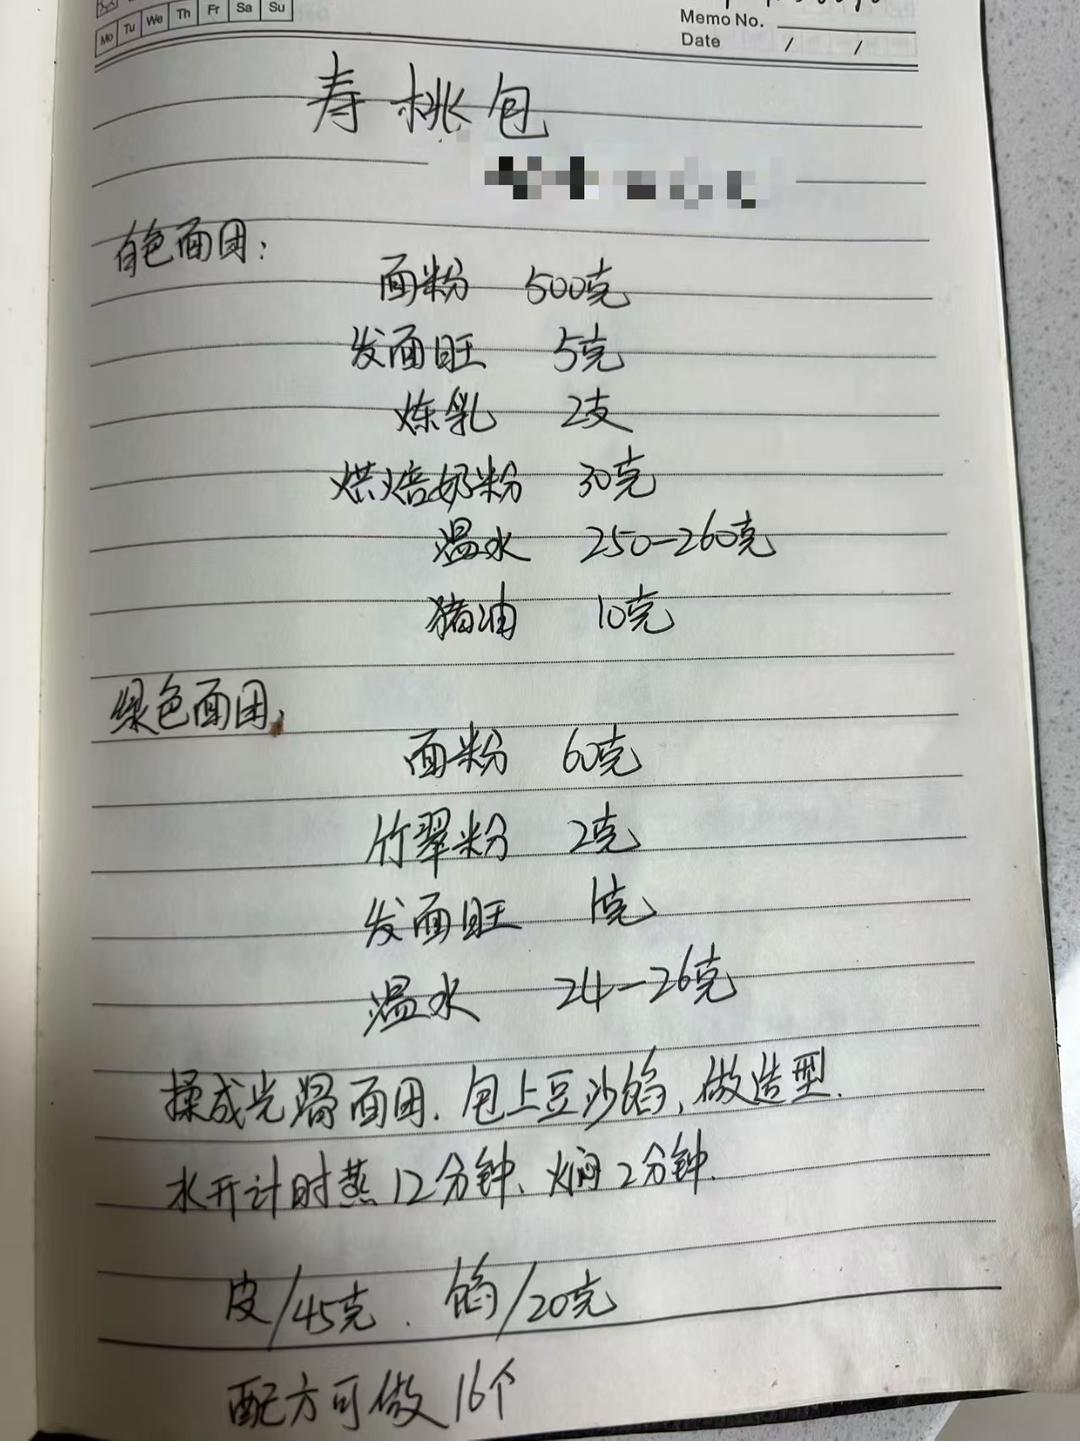 Mo Tu We Th Fr Sa Su
Memo No.
Date / /
寿桃包
白色面团:
面粉 500克
发面旺 5克
炼乳 2支
烘焙奶粉 30克
温水 250-260克
猪油 10克
绿色面团:
面粉 60克
竹翠粉 2克
发面旺 1克
温水 24-26克
揉成光滑面团.包上豆沙馅,做造型.
水开计时蒸12分钟、焖2分钟.
皮/45克. 馅/20克
配方可做16个